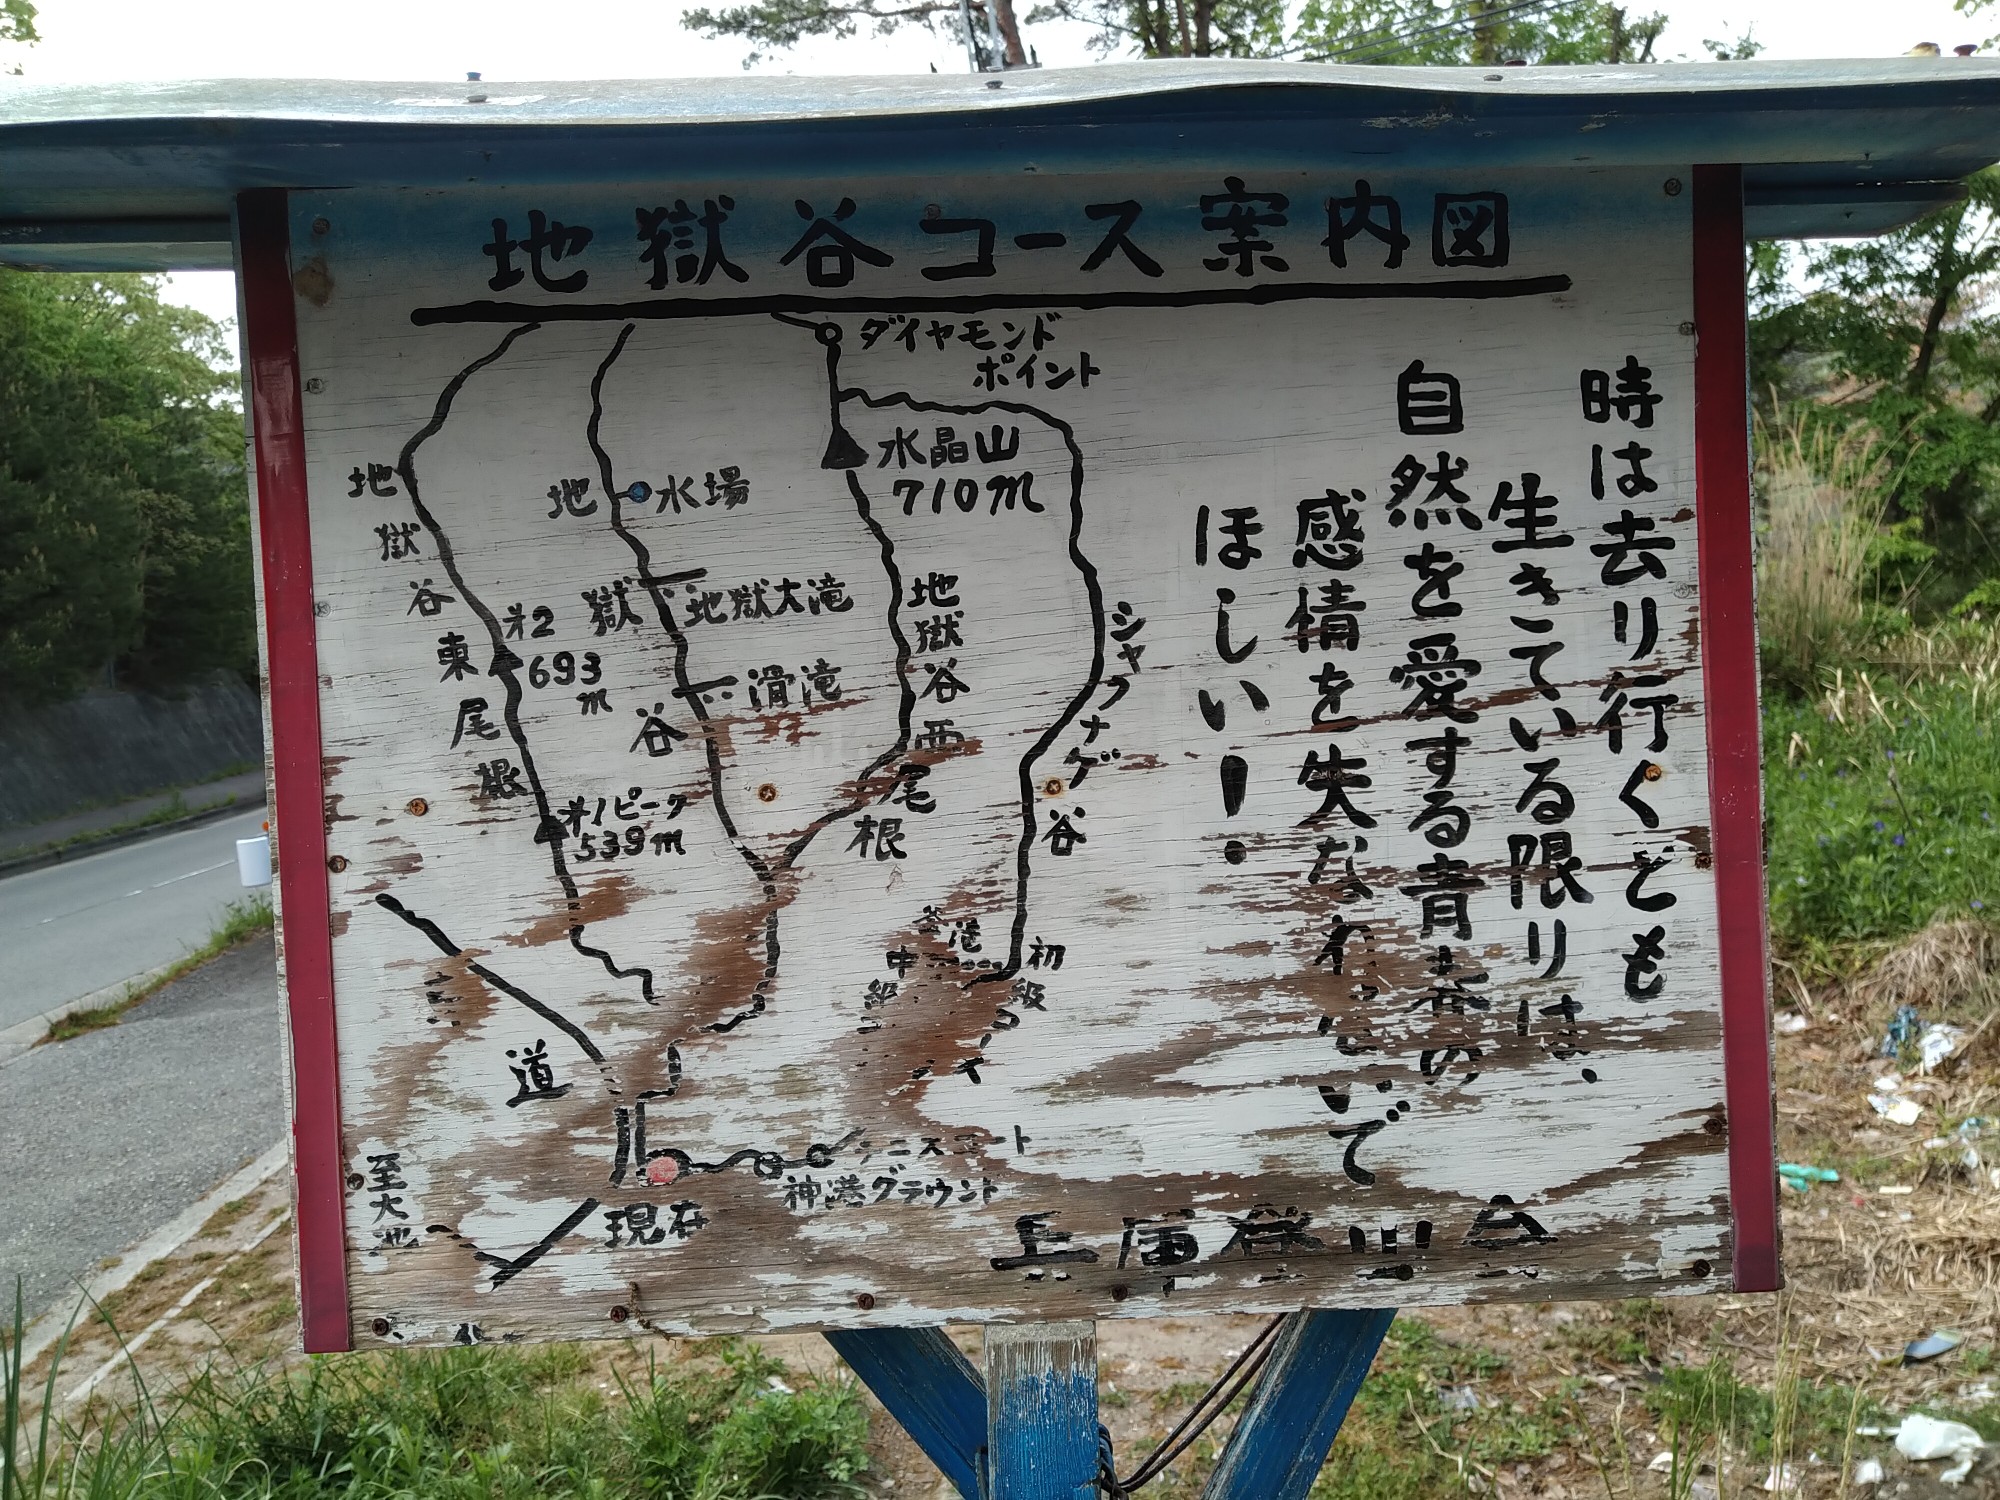 地獄谷コース案内図
ダイヤモンド
ポイント
水晶山
710m
地獄谷東尾根
地獄谷
水場
地獄大滝
滑滝
オ2
693
m
オ1ピーク
539m
地獄谷西尾根
シャクナゲ谷
初級
中級
道
至大池
現在
テニスコート
神港グラウント
時は去り行くとも
生きている限りは、
自然を愛する青春の
感情を失なわないで
ほしい!
兵庫登山会